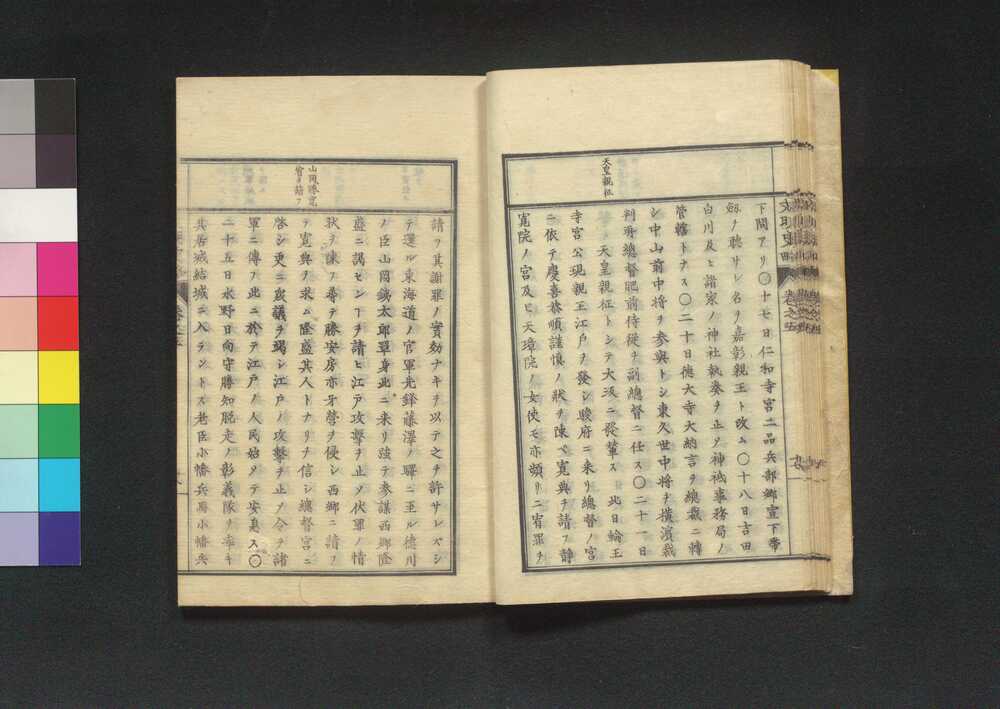 天皇親征
下關アリ〇十七日仁和寺宮二品兵部卿宣下帶
劔ヲ聽サレ名ヲ嘉彰親王ト改ム〇十八日吉田
白川及ヒ諸家ノ神社執奏ヲ止ヲ神祇事務局ノ
管轄トナス〇二十日德大寺大納言ヲ總裁ニ轉
シ中山前中將ヲ參與トシ東久世中將ヲ橫濱裁
判所總督肥前侍從ヲ副總督ニ任ス〇二十一日
天皇親征トシテ大坂ニ發輦ス 此日輪王
寺宮公現親王江戶ヲ發シ駿府ニ來リ總督ノ宮
ニ依テ慶喜恭順謹愼ノ狀ヲ陳ベ寬典ヲ請フ靜
寬院ノ宮及ヒ天璋院ノ女使モ亦頻リニ宥罪ヲ
山岡勝寬
典ヲ請フ
請フ其謝罪ノ實効ナキヲ以テ之ヲ許サレズシ
テ還ル東海道ノ官軍先鋒藤澤ノ驛ニ至ル德川
ノ臣山岡鐵太郎單身此ニ來リ强テ參謀西鄕隆
盛ニ謁センヿヲ請ヒ江戶攻擊ヲ止メ伏罪ノ情
狀ヲ諫フ尋テ勝安房亦牙營ヲ侵シ西鄕ニ請フ
テ寬典ヲ求ム隆盛其人トナリヲ信シ總督宮ニ
啓シ更ニ衆議ヲ竭シ江戶ノ攻擊ヲ止ノ令ヲ諸
軍ニ傳フ此ニ於テ江戶ノ人民始メテ安息ス〇
二十五日水野日向守勝知脫走ノ彰義隊ヲ率キ
其居城結城ニ入ラントス老臣小幡兵馬小幡兵
文明史畧 卷之五